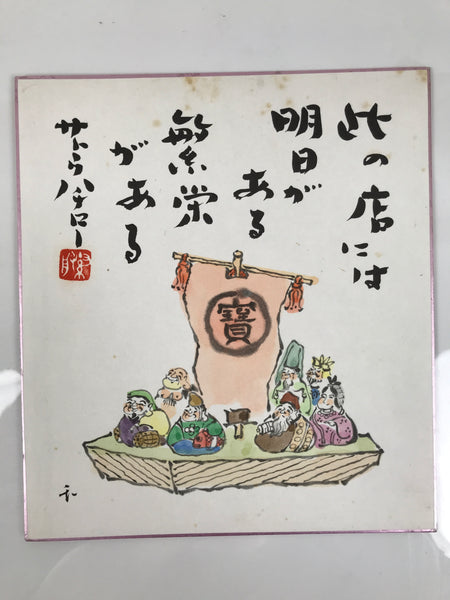 此の店には
明日が
ある
繁栄
がある
サトウハチロー
寶